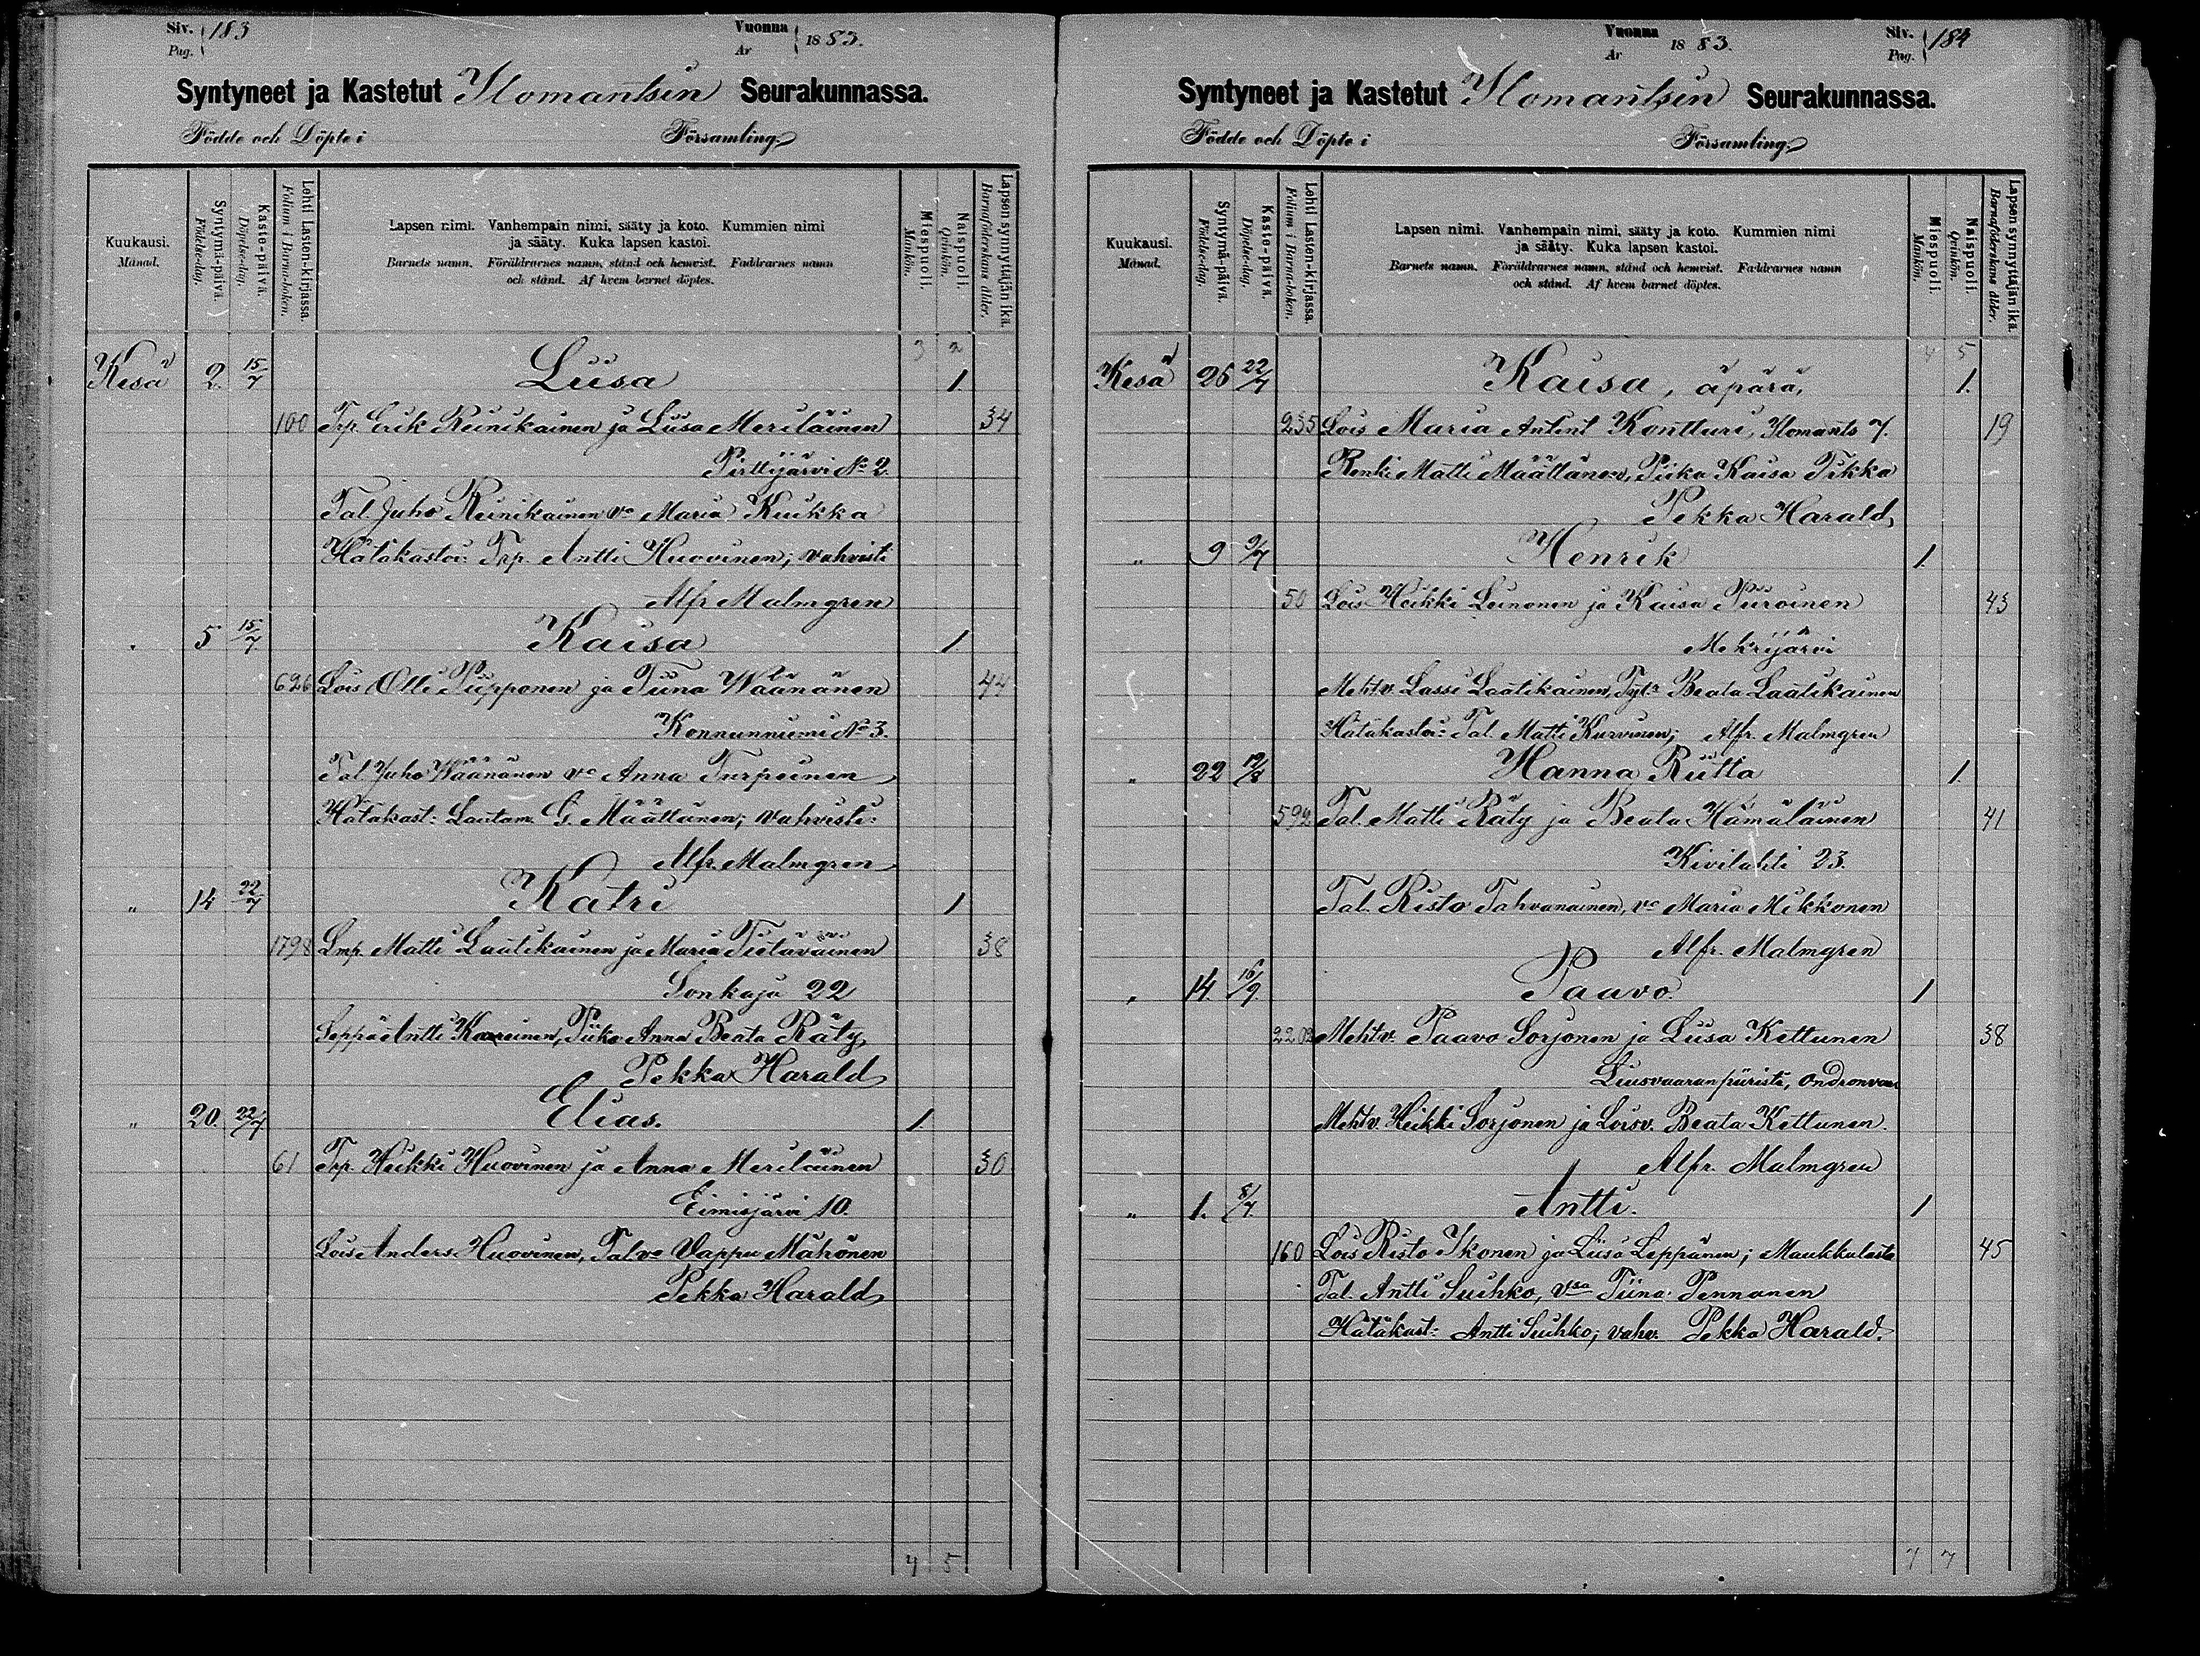 Siv. Pag. 183 Vuonna Ar 1883.
Syntyneet ja Kastetut Ilomantsin Seurakunnassa.
Födde och Döpte i Församling.
Kuukausi. Månad.
Syntymä-päivä. Födelse-dag.
Kaste-päivä. Döpelse-dag.
Lehti Lasten-kirjassa. Folium i Barna-boken.
Lapsen nimi. Vanhempain nimi, sääty ja koto. Kummien nimi
ja sääty. Kuka lapsen kastoi.
Barnets namn. Föräldrarnes namn, stånd och hemvist. Faddrarnes namn
och stånd. Af hvem barnet döptes.
Miespuoli. Mankön.
Naispuoli. Qvinkön.
Lapsen synnyttäjän ikä. Barnaföderskans ålder.
3 2
Kesä 2. 15/7 Liisa 1
100 Trp. Erik Reinikainen ja Liisa Meriläinen 34
Pirttijärvi No 2.
Tal. Juho Reinikainen vo Maria Kuikka
Hätäkastoi: Trp. Antti Huovinen; vahvisti
Alfr Malmgren
" 5 15/7 Kaisa 1
626 Lois Olli Piipponen ja Tiina Wäänänen 44
Konnunniemi No 3.
Tal Juho Wäänänen vo Anna Turpeinen
Hätäkast: Lautam. G. Määttänen; vahvisti:
Alfr. Malmgren
" 14 22/7 Katri 1
1798 Lmp. Matti Laatikainen ja Maria Tietäväinen 38
Sonkaja 22
Seppä Antti Karreinen, Piika Anna Beata Räty
Pekka Harald
" 20. 22/7 Elias. 1
61 Trp. Heikki Huovinen ja Anna Meriläinen 30
Eimisjärvi 10.
Lois Anders Huovinen, Tal vo Vappu Mähönen
Pekka Harald
4 5
Vuonna Ar 1883. Siv. Pag. 184
Syntyneet ja Kastetut Ilomantsin Seurakunnassa.
Födde och Döpte i Församling.
Kuukausi. Månad.
Syntymä-päivä. Födelse-dag.
Kaste-päivä. Döpelse-dag.
Lehti Lasten-kirjassa. Folium i Barna-boken.
Lapsen nimi. Vanhempain nimi, sääty ja koto. Kummien nimi
ja sääty. Kuka lapsen kastoi.
Barnets namn. Föräldrarnes namn, stånd och hemvist. Faddrarnes namn
och stånd. Af hvem barnet döptes.
Miespuoli. Mankön.
Naispuoli. Qvinkön.
Lapsen synnyttäjän ikä. Barnaföderskans ålder.
4 5
Kesä 26 22/7 Kaisa, äpärä, 1.
235 Lois Maria Antint Kontturi, Ilomants 7. 19
Renki Matti Määttänen, Piika Kaisa Tikka
Pekka Harald
" 9 9/7 Henrik 1.
50 Lois Heikki Leinonen ja Kaisa Puroinen 43
Mekrijärvi
Mehtv. Lassi Laatikainen, Tytr Beata Laatikainen
Hätäkastoi: Tal. Matti Kurvinen; Alfr. Malmgren
" 22 12/8 Hanna Riitta 1.
592 Tal. Matti Räty ja Beata Hämäläinen 41
Kivilahti 23.
Tal. Risto Tahvanainen, vo Maria Mikkonen
Alfr. Malmgren
" 14. 16/9. Paavo. 1
Mehtv. Paavo Sorjonen ja Liisa Kettunen 38
Liusvaaran piiristi,
Mehtv. Heikki Sorjonen ja Loisv. Beata Kettunen.
Alfr. Malmgren
" 1. 8/7. Antti. 1
160 Lois Risto Ikonen ja Liisa Leppänen; Maukkulasta 45
Tal. Antti Suihko, vsa Tiina Pennanen
Hätäkast: Antti Suihko; vahv. Pekka Harald.
7 7